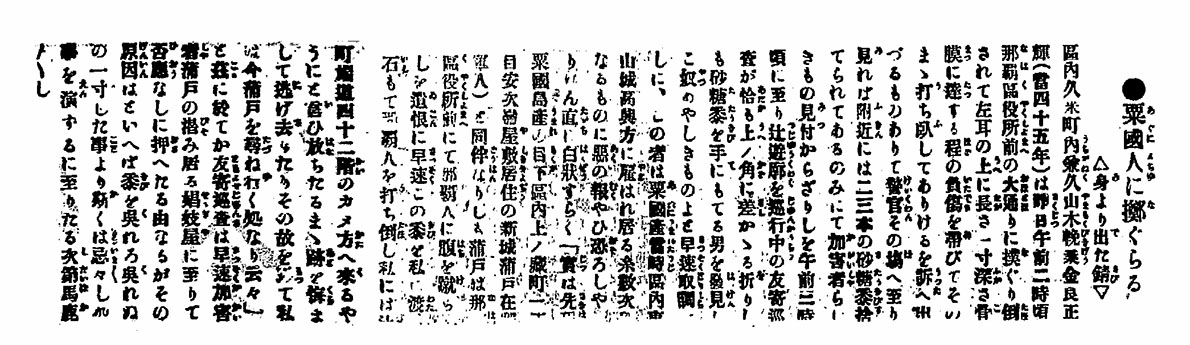 ●粟國人に擲ぐらる
△身より出た錆▽
區內久米町內兼久山木挽業金良正
輝(當四十五年)は昨日午前二時頃
那覇區役所前の大通りに撲ぐり倒
されて左耳の上に長さ一寸深さ骨
膜に達する程の負傷を帶びてその
まゝ打ち臥してありけるを訴へ出
づるものありて警官その塲へ至り
見れば附近には二三本の砂糖黍捨
てられてあるのみにて加害者らし
きもの見付からざりしを午前三時
頃に至り辻遊廓を巡行中の友寄巡
査が恰も上ノ角に差かゝる折りし
も砂糖黍を手にもてる男を發見し
こ奴あやしきものよと早速取調
しに、この者は粟國產當時區內東
山城高興方に雇はれ居る糸數次
なるものに惡の報やひ恐ろしや
りけん直に白狀すらく「實は先
粟國島產の目下區內上ノ藏町一
目安次嶺屋敷居住の新城蒲戸在
軍人)と同伴なりしも蒲戸は那
區役所前にて那覇人に腹を蹴ら
しを遺恨に早速この黍を私に渡
石もて那覇人を打ち倒し私には
町端道四十二階のカメ方へ來るや
うにと言ひ放ちたるまゝ跡を悔ま
して逃げ去りたりその故を以て私
は今蒲戸を尋ね行く処なり云々」
と茲に於てか友寄巡査は早速加害
者蒲戸の揩み居る娼妓屋に至りて
否應なしに押へたる由なるがその
原因はといへば黍を吳れろ吳れぬ
の一寸した事より斯くは忌々しか
事を演ずるに至りたる次第馬鹿
〱し